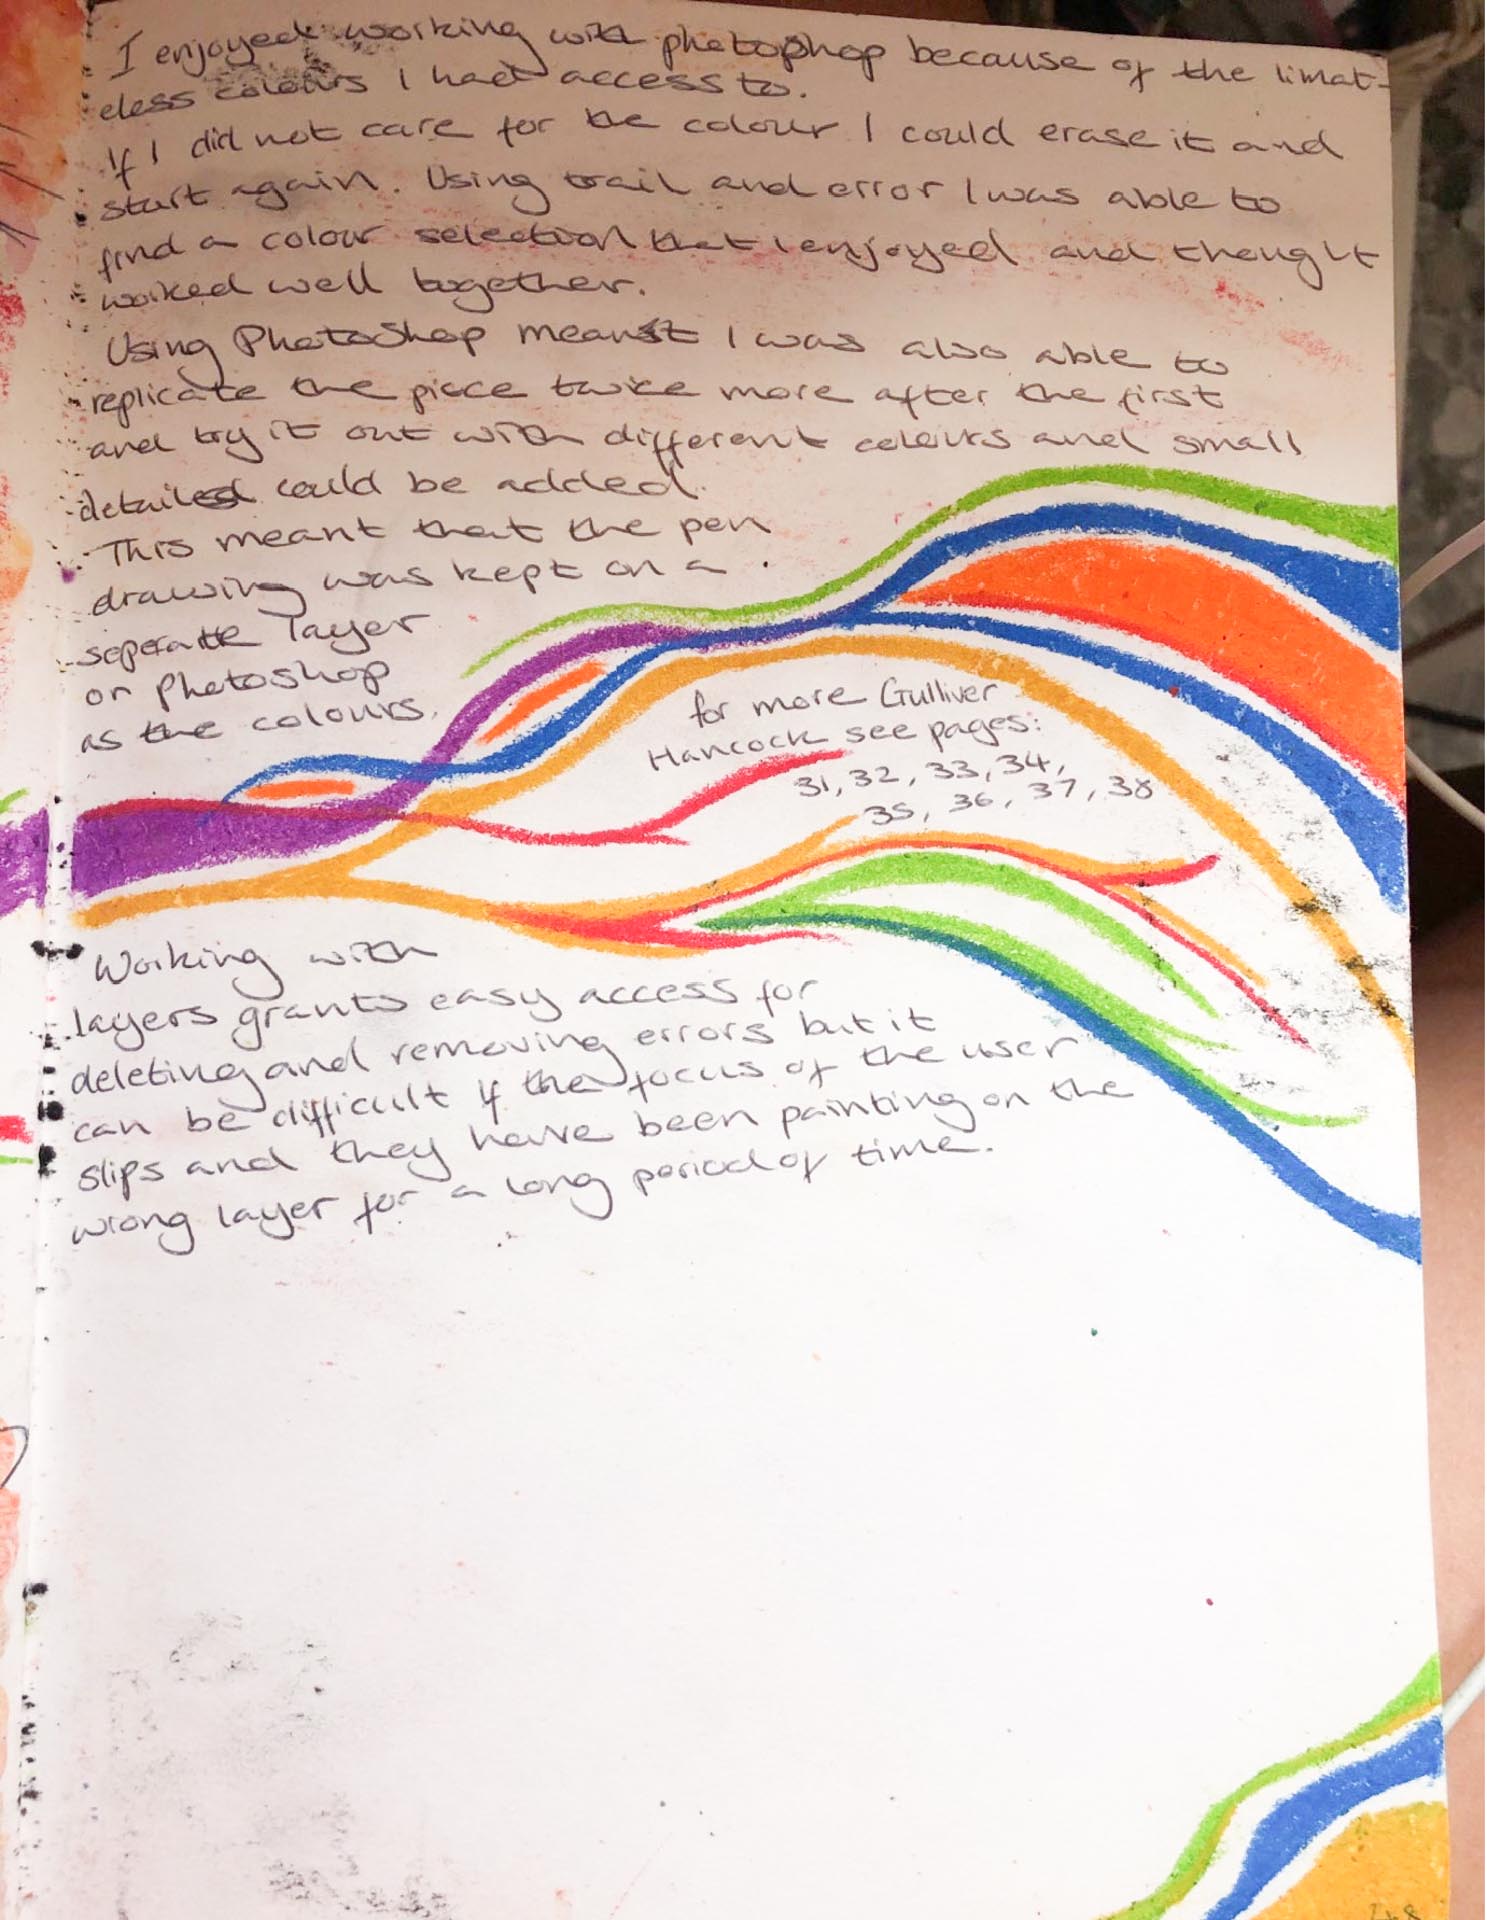 I enjoyed working with photophop because of the limat-
eless colours I had access to.
If I did not care for the colour I could erase it and
start again. Using trail and error I was able to
find a colour selection that I enjoyed and thought
worked well together.
Using PhotoShop meant I was also able to
replicate the piece twice more after the first
and try it out with different colours and small
detailed could be added.
This meant that the pen
drawing was kept on a
seperate layer
on photoshop
as the colours.
for more Gulliver
Hancock see pages:
31, 32, 33, 34,
35, 36, 37, 38
Working with
layers grants easy access for
deleting and removing errors but it
can be difficult if the focus of the user
slips and they have been painting on the
wrong layer for a long period of time.